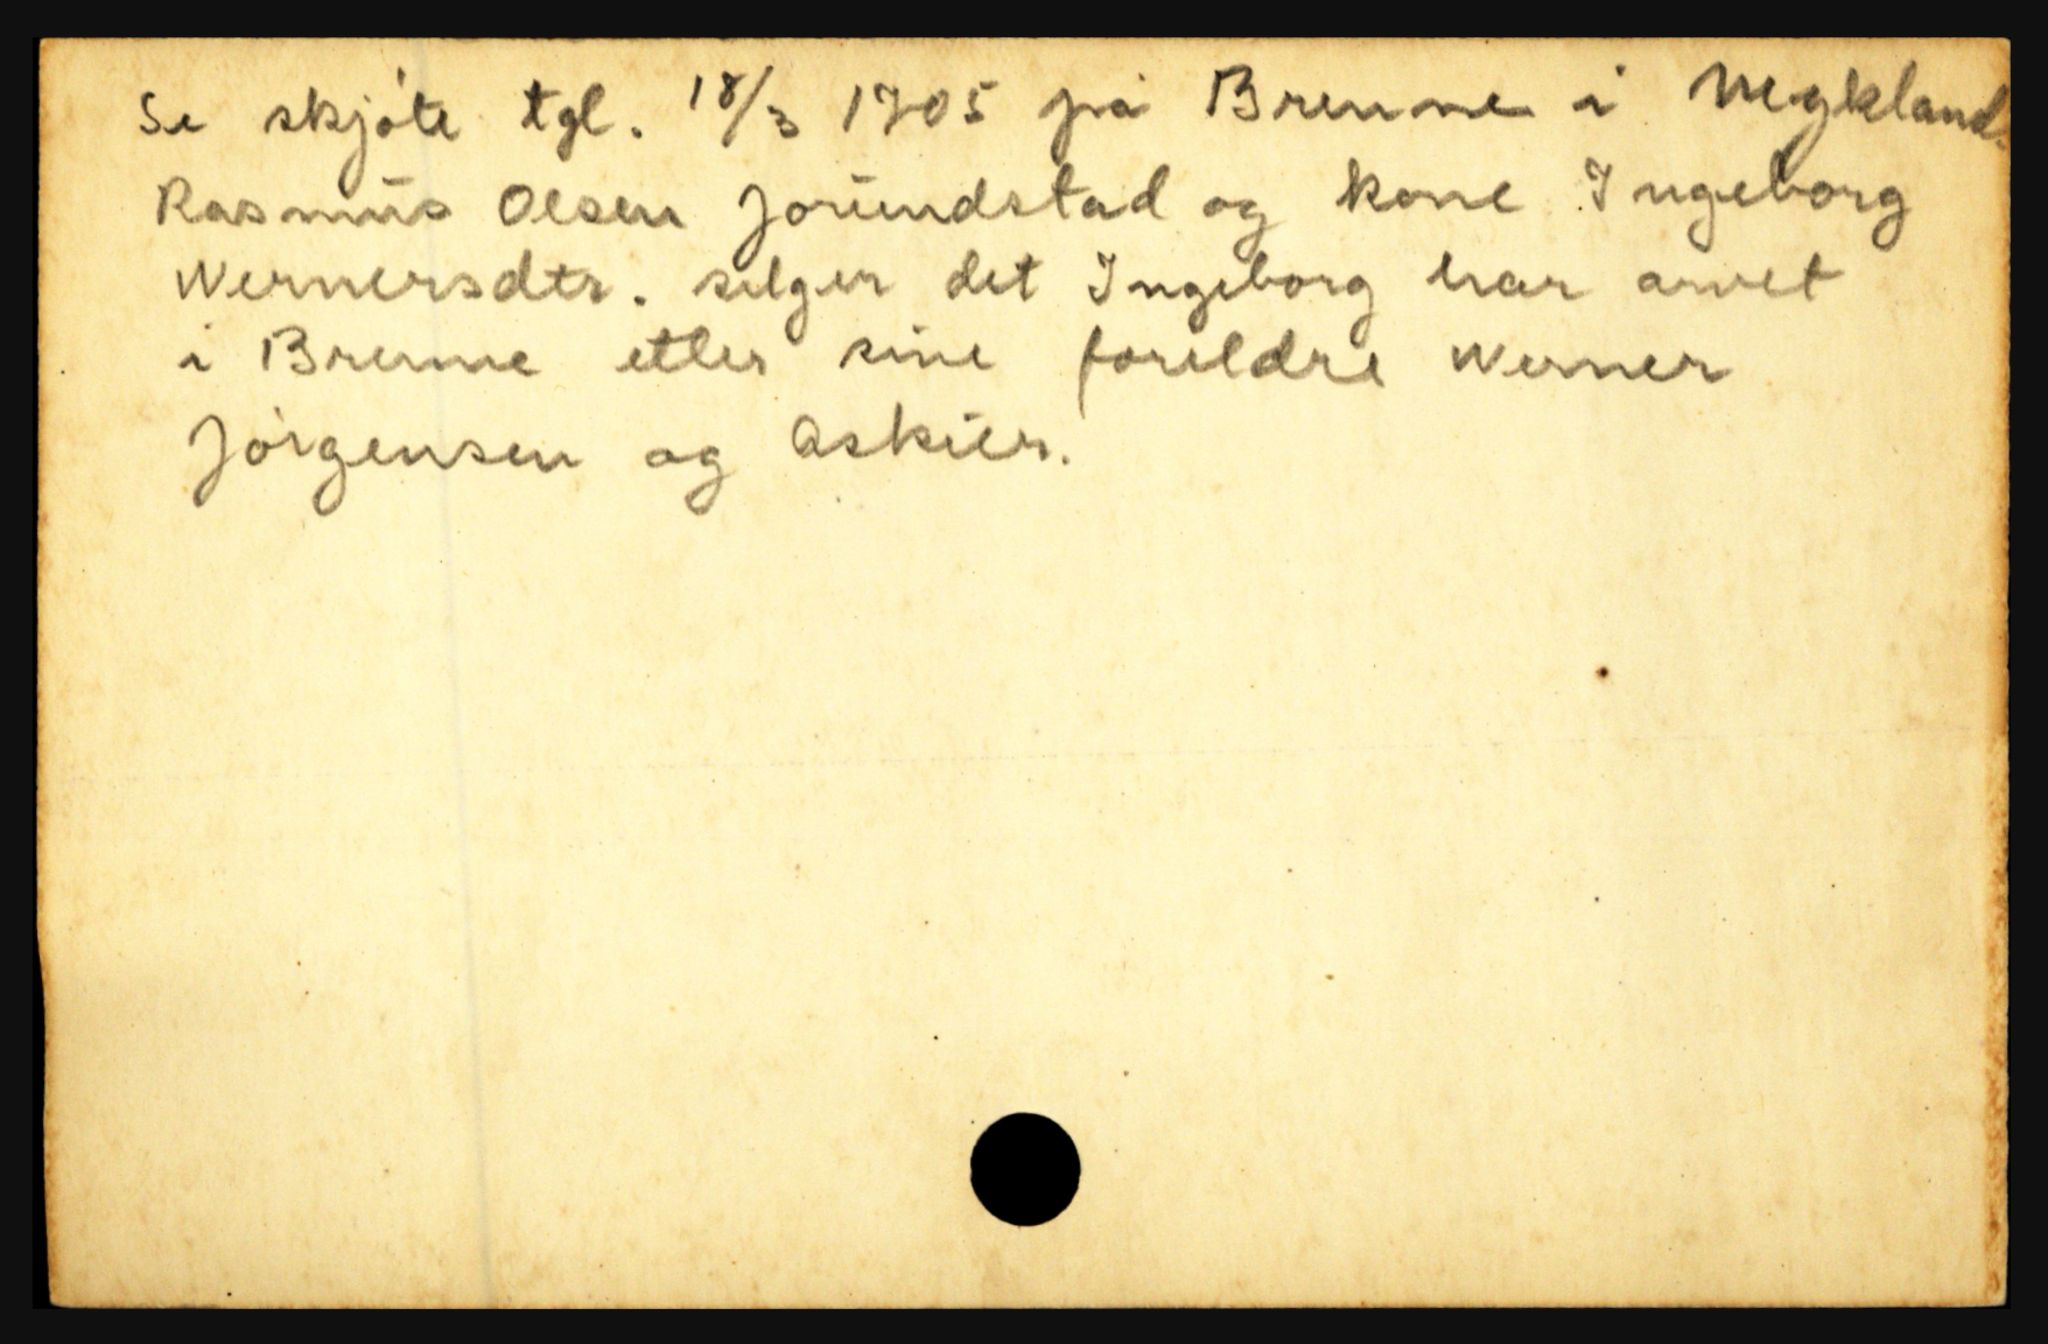 Se skjøte tgl. 18/3 1705 på Brenne i Mykland.
Rasmus Olsen Jorundstad og kone Ingeborg
Wernersdtr. selger det Ingeborg har arvet
i Brenne etter sine foreldre Werner
Jørgensen og Askier.